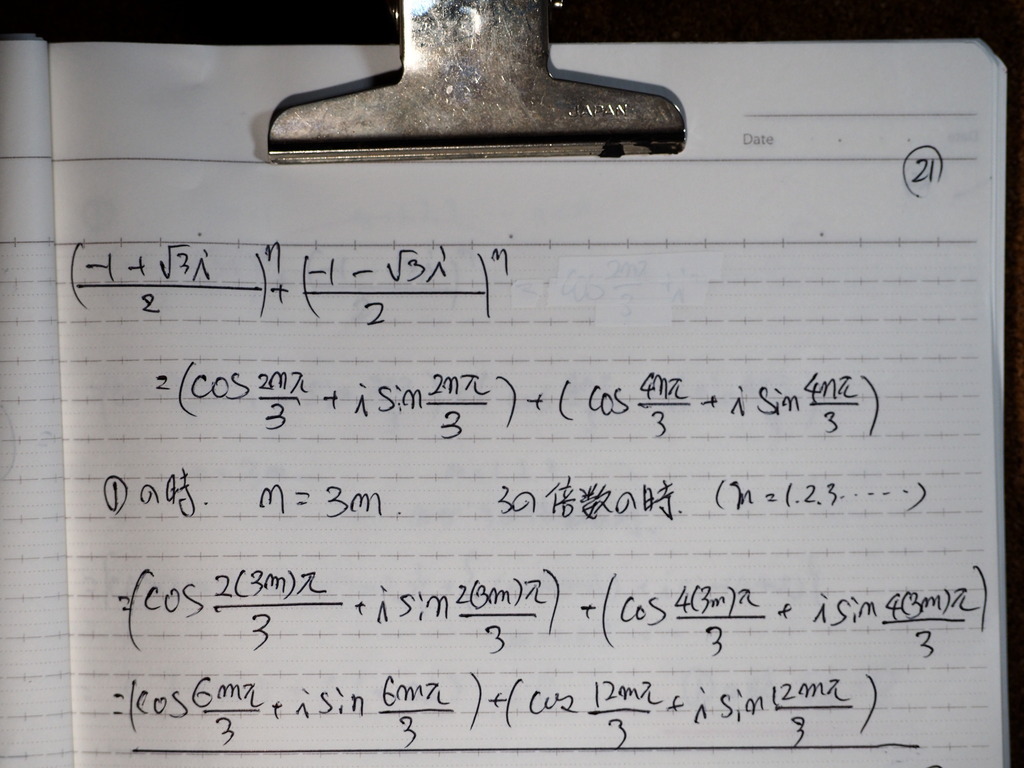 JAPAN
Date
㉑
(-1+√3i/2)^n + (-1-√3i/2)^n
=(cos 2nπ/3 + i sin 2nπ/3) + (cos 4nπ/3 + i sin 4nπ/3)
①の時. n=3m. 3の倍数の時. (n=1.2.3.....)
=(cos 2(3m)π/3 + i sin 2(3m)π/3) + (cos 4(3m)π/3 + i sin 4(3m)π/3)
=(cos 6mπ/3 + i sin 6mπ/3) + (cos 12mπ/3 + i sin 12mπ/3)